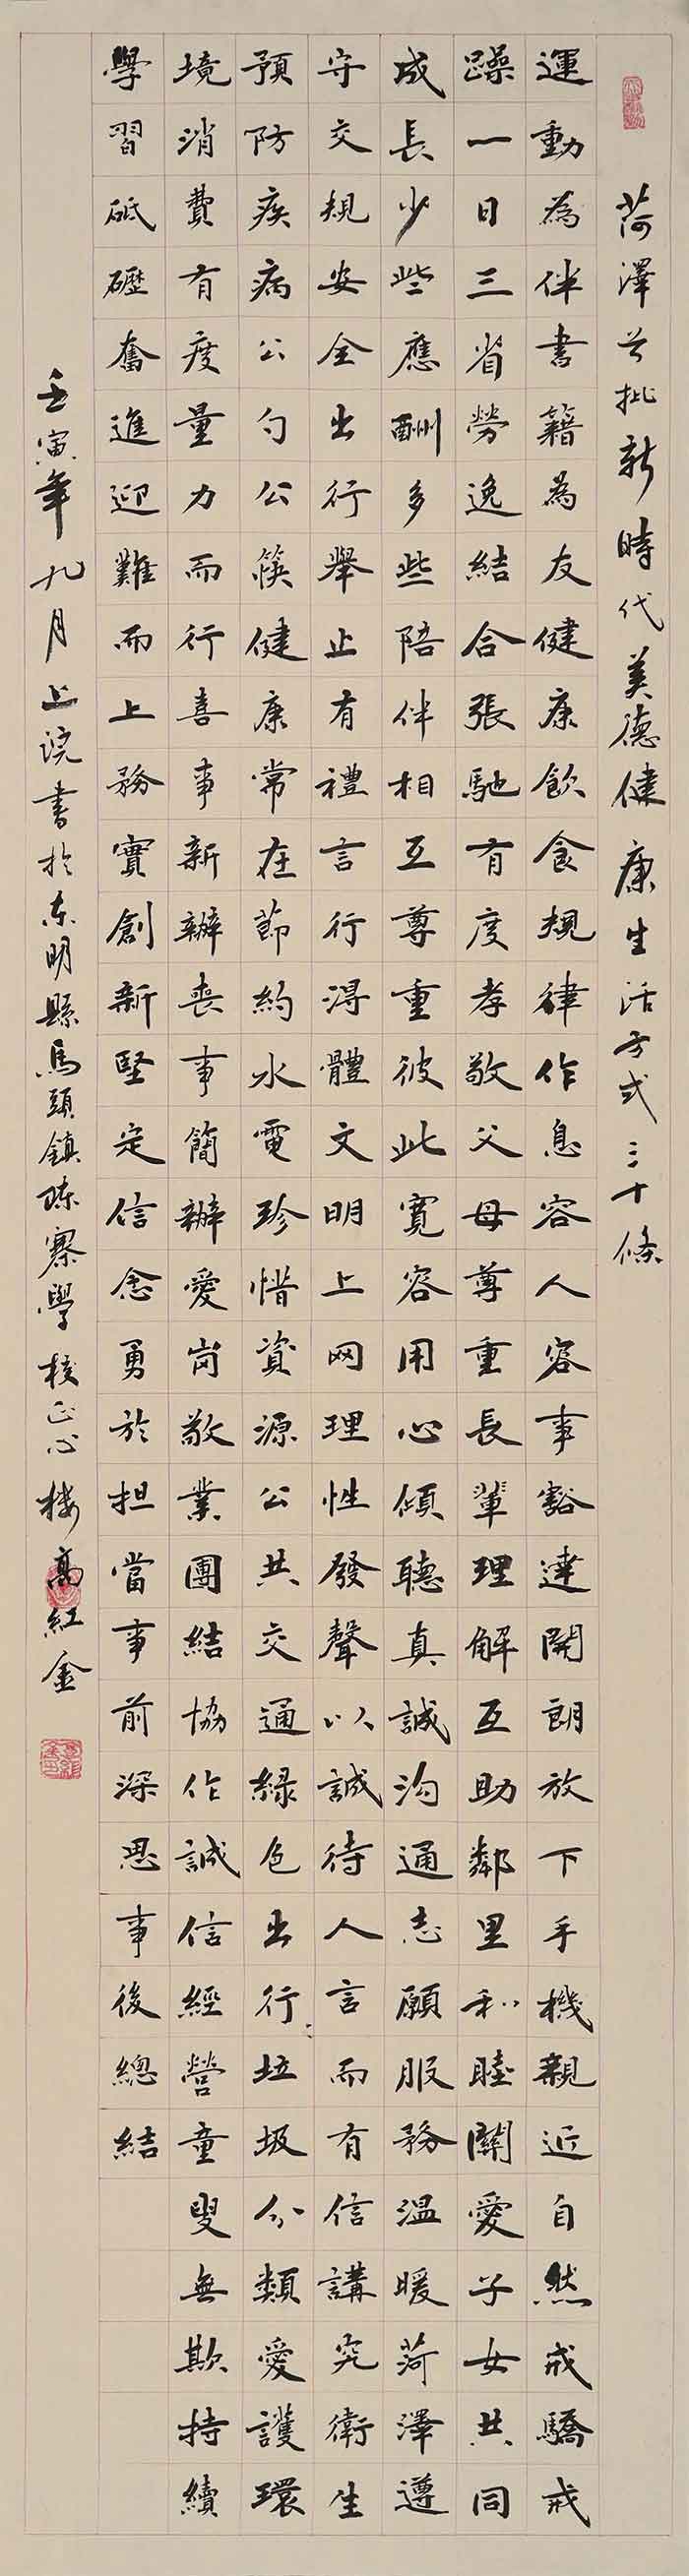 菏澤首批新時代美德健康生活方式三十條
運動為伴書籍為友健康飲食規律作息容人容事豁達開朗放下手機親近自然戒驕戒
躁一日三省勞逸結合張馳有度孝敬父母尊重長輩理解互助鄰里和睦關愛子女共同
成長少些應酬多些陪伴相互尊重彼此寬容用心傾聽真誠溝通志願服務溫暖菏澤遵
守交規安全出行舉止有禮言行得體文明上网理性發聲以誠待人言而有信講究衛生
預防疾病公勺公筷健康常在節約水電珍惜資源公共交通綠色出行垃圾分類愛護環
境消費有度量力而行喜事新辦喪事簡辦愛崗敬業團結協作誠信經營童叟無欺持續
學習砥礪奮進迎難而上務實創新堅定信念勇於担當事前深思事後總結
壬寅年九月上浣書於东明縣馬頭鎮陈寨學校正心楼高紅金